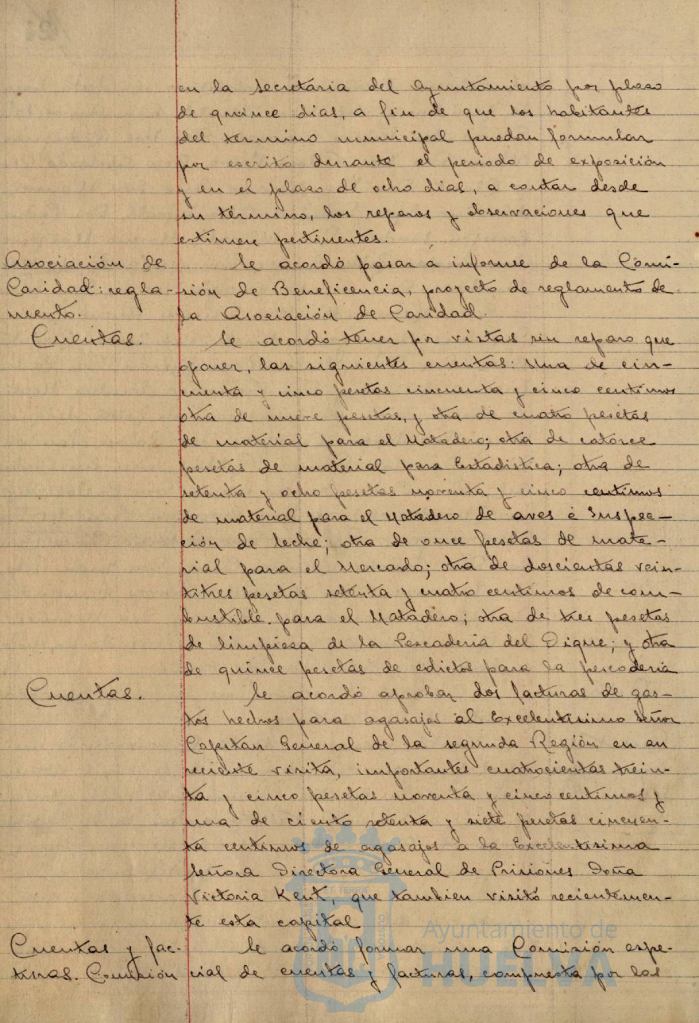 en la secretaria del Ayuntamiento por plazo
de quince dias, a fin de que los habitantes
del termino municipal puedan formular
por escrito durante el periodo de exposición
y en el plazo de ocho dias, a contar desde
su término, los reparos y observaciones que
estimen pertinentes.
Asociación de
Caridad: regla-
mento.
Se acordó pasar á informe de la Comi-
sión de Beneficencia, proyecto de reglamento de
la Asociación de Caridad.
Cuentas.
Se acordó tener por vistas sin reparo que
oponer, las siguientes cuentas: Una de cin-
cuenta y cinco pesetas cincuenta y cinco centimos
otra de nueve pesetas, y otra de cuatro pesetas
de material para el Matadero; otra de catorce
pesetas de material para Estadistica; otra de
setenta y ocho pesetas noventa y cinco centimos
de material para el Matadero de aves é Inspec-
ción de leche; otra de once pesetas de mate-
rial para el Mercado; otra de doscientas vein-
titres pesetas setenta y cuatro centimos de com-
bustible para el Matadero; otra de tres pesetas
de limpiesa de la Pescaderia del Dique; y otra
de quince pesetas de edictos para la pescaderia
Cuentas.
Se acordó aprobar dos facturas de gas-
tos hechos para agasajos al Excelentisimo Señor
Capitan General de la segunda Región en su
reciente visita, importantes cuatrocientas trein-
ta y cinco pesetas noventa y cinco centimos y
una de ciento setenta y siete pesetas cincuen-
ta centimos de agasajos a la Excelentisima
Señora Directora General de Prisiones Doña
Victoria Kent, que tambien visitó recientemen-
te esta capital
Cuentas y fac-
turas. Comisión
Se acordó formar una Comisión espe-
cial de cuentas y facturas, compuesta por los
Ayuntamiento de
HUELVA